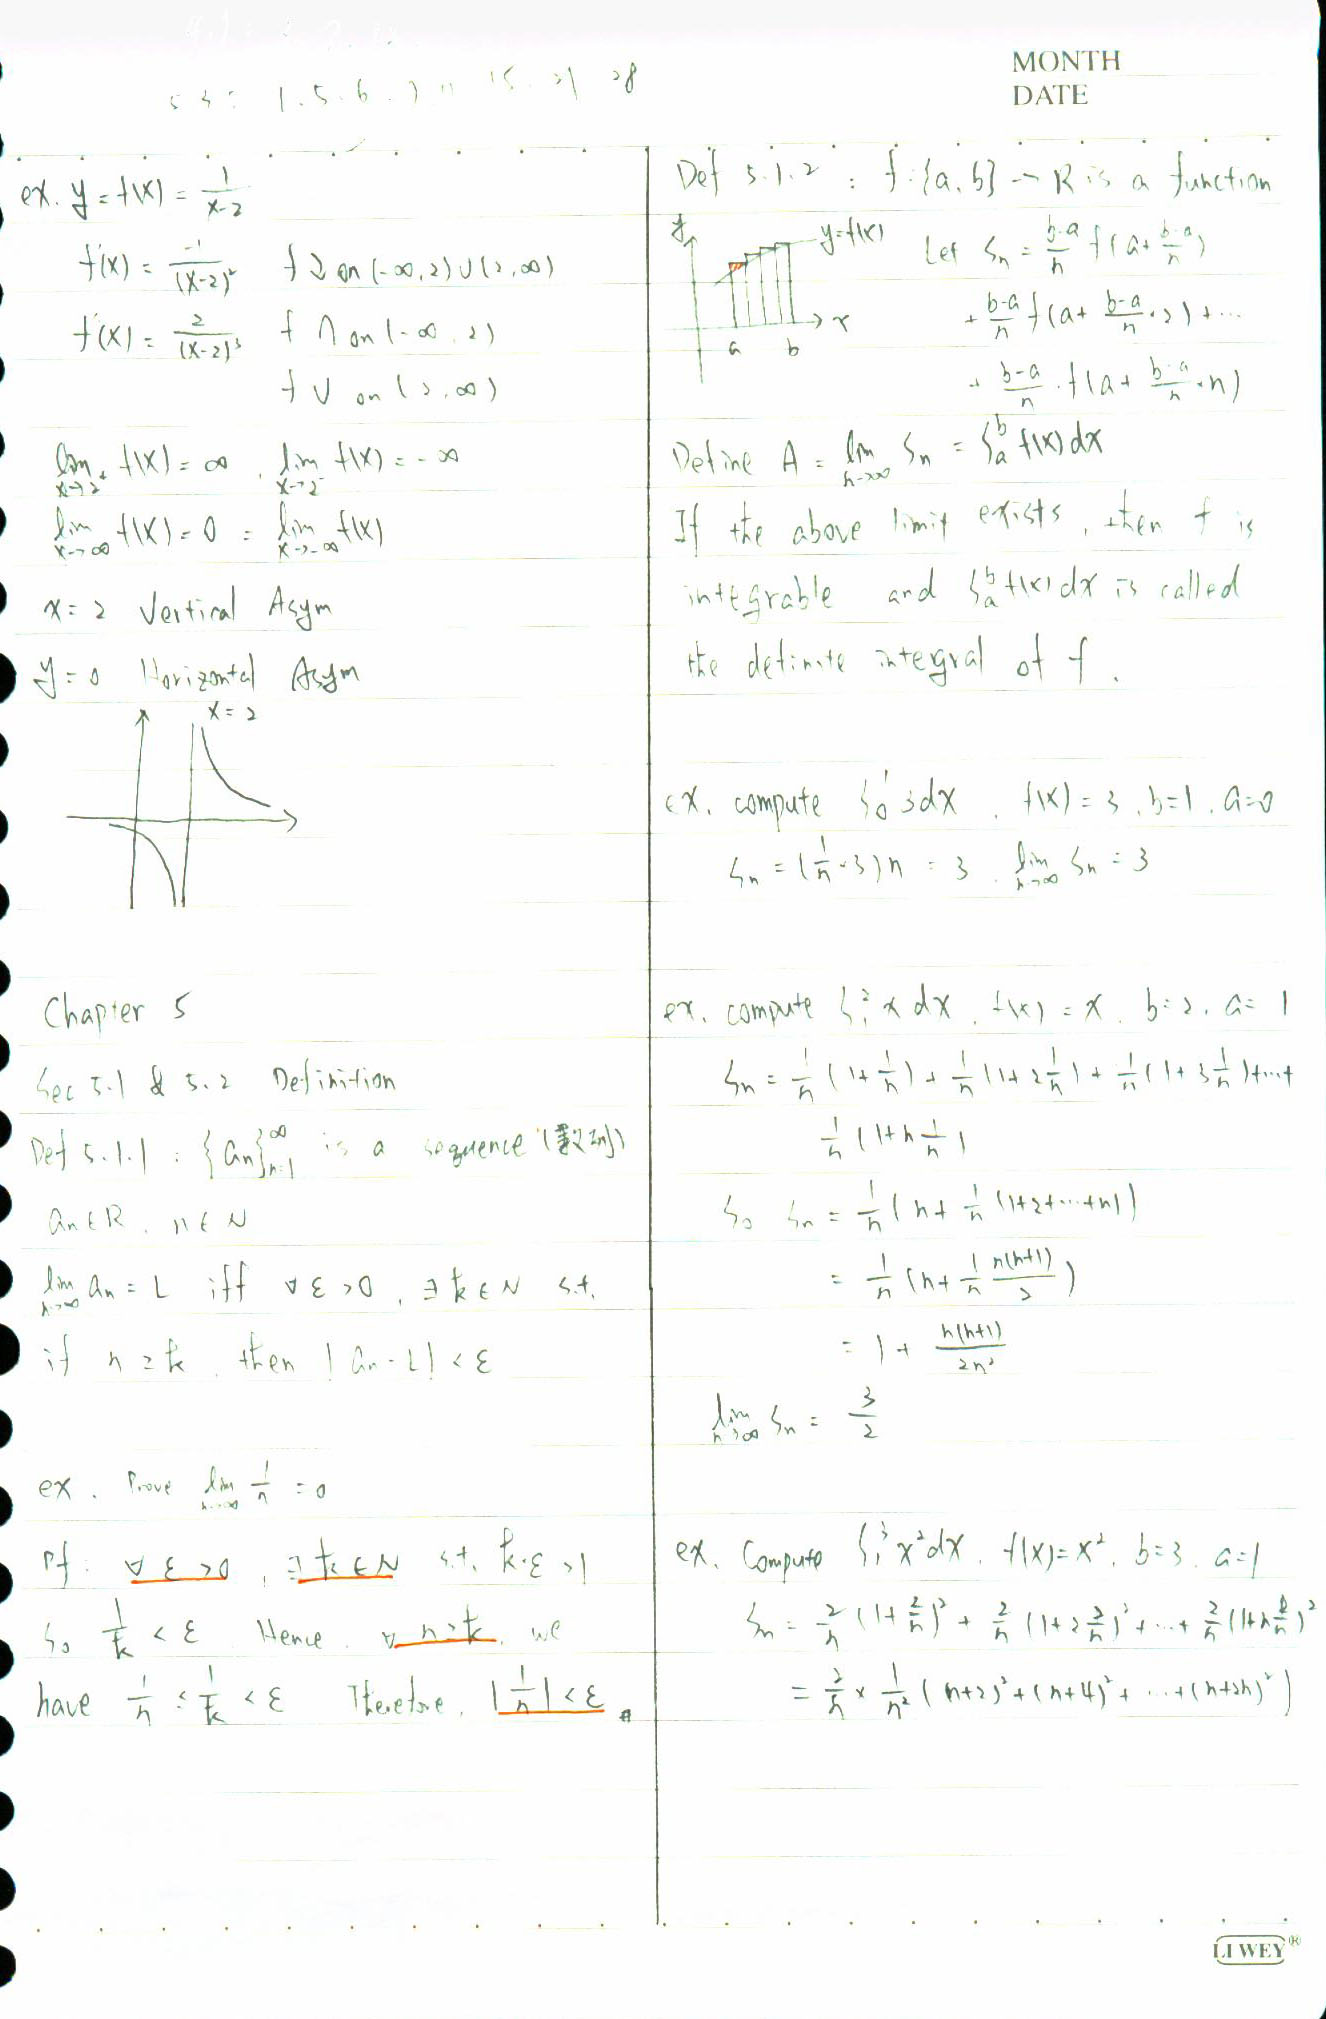 MONTH
DATE
ex. y = f(x) = 1/(x-2)
f'(x) = -1/(x-2)² f ↘ on (-∞, 2) ∪ (2, ∞)
f''(x) = 2/(x-2)³ f ∩ on (-∞, 2)
f ∪ on (2, ∞)
lim x→2⁺ f(x) = ∞, lim x→2⁻ f(x) = -∞
lim x→∞ f(x) = 0 = lim x→-∞ f(x)
x = 2 Vertical Asym
y = 0 Horizontal Asym
x = 2
Chapter 5
Sec 5.1 & 5.2 Definition
Def 5.1.1 : {an}∞n=1 is a sequence (數列)
an ∈ R, n ∈ N
lim n→∞ an = L iff ∀ ε > 0, ∃ k ∈ N s.t.
if n ≥ k, then |an - L| < ε
ex. Prove lim n→∞ 1/n = 0
Pf: ∀ ε > 0, ∃ k ∈ N s.t. k·ε > 1
So 1/k < ε. Hence, ∀ n > k, we
have 1/n < 1/k < ε Therefore, |1/n| < ε #
Def 5.1.2 : f: [a, b] → R is a function
y
y = f(x)
x
a b
Let Sn = (b-a)/n f(a + (b-a)/n)
+ (b-a)/n f(a + (b-a)/n · 2) + ...
+ (b-a)/n · f(a + (b-a)/n · n)
Define A = lim n→∞ Sn = ∫ₐᵇ f(x) dx
If the above limit exists, then f is
integrable and ∫ₐᵇ f(x) dx is called
the definite integral of f.
ex. compute ∫₀¹ 3dx, f(x) = 3, b=1, a=0
Sn = (1/n · 3) n = 3, lim n→∞ Sn = 3
ex. compute ∫₁² x dx, f(x) = x, b=2, a=1
Sn = 1/n (1 + 1/n) + 1/n (1 + 2 1/n) + 1/n (1 + 3 1/n) + ... +
1/n (1 + n 1/n)
So Sn = 1/n (n + 1/n (1+2+...+n))
= 1/n (n + 1/n n(n+1)/2)
= 1 + n(n+1)/2n²
lim n→∞ Sn = 3/2
ex. Compute ∫₁³ x² dx, f(x) = x², b=3, a=1
Sn = 2/n (1 + 2/n)² + 2/n (1 + 2 2/n)² + ... + 2/n (1 + n 2/n)²
= 2/n × 1/n² ((n+2)² + (n+4)² + ... + (n+2n)²)
LI WEY®